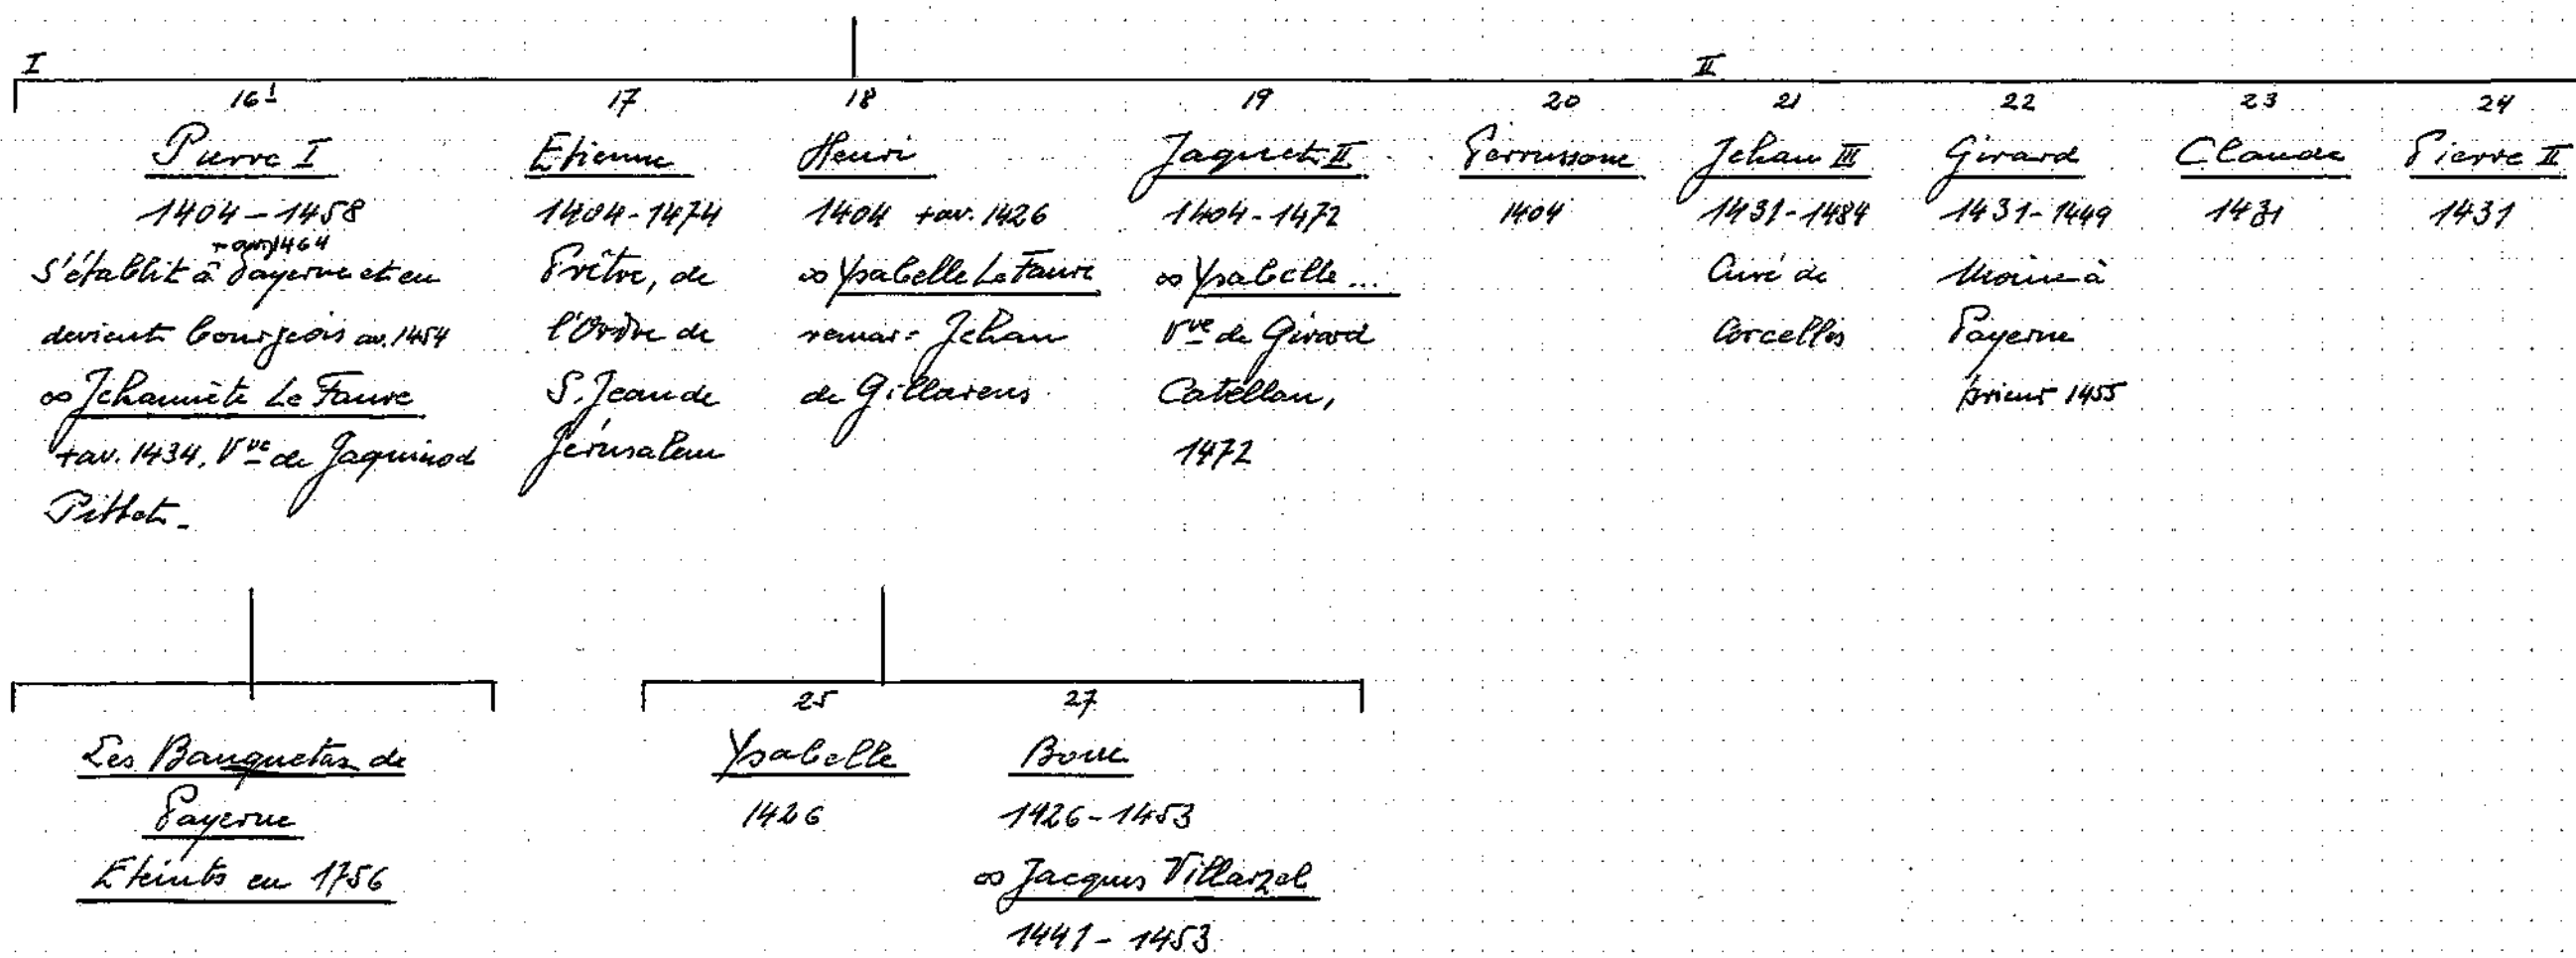 I
II
16¹ 17 18 19 20 21 22 23 24
Pierre I
1404 - 1458
+ av. 1464
S'établit à Payerne et en
devient bourgeois av. 1454
∞ Jehannète Le Favre
+ av. 1434. Vve de Jaquinod
Pittet.
Etienne
1404 - 1474
Prêtre, de
l'Ordre de
S. Jean de
Jérusalem
Henri
1404 + av. 1426
∞ Ysabelle Le Favre
remar: Jehan
de Gillarens
Jaquet II
1404 - 1472
∞ Ysabelle ...
Vve de Girard
Catellan,
1472
Perrussone
1404
Jehan III
1431 - 1484
Curé de
Corcelles
Girard
1431 - 1449
Moine à
Payerne
prieur 1455
Claude
1431
Pierre II
1431
Les Banquetaz de
Payerne
Eteints en 1756
25 27
Ysabelle
1426
Bone
1426 - 1453
∞ Jacques Villarzel
1441 - 1453